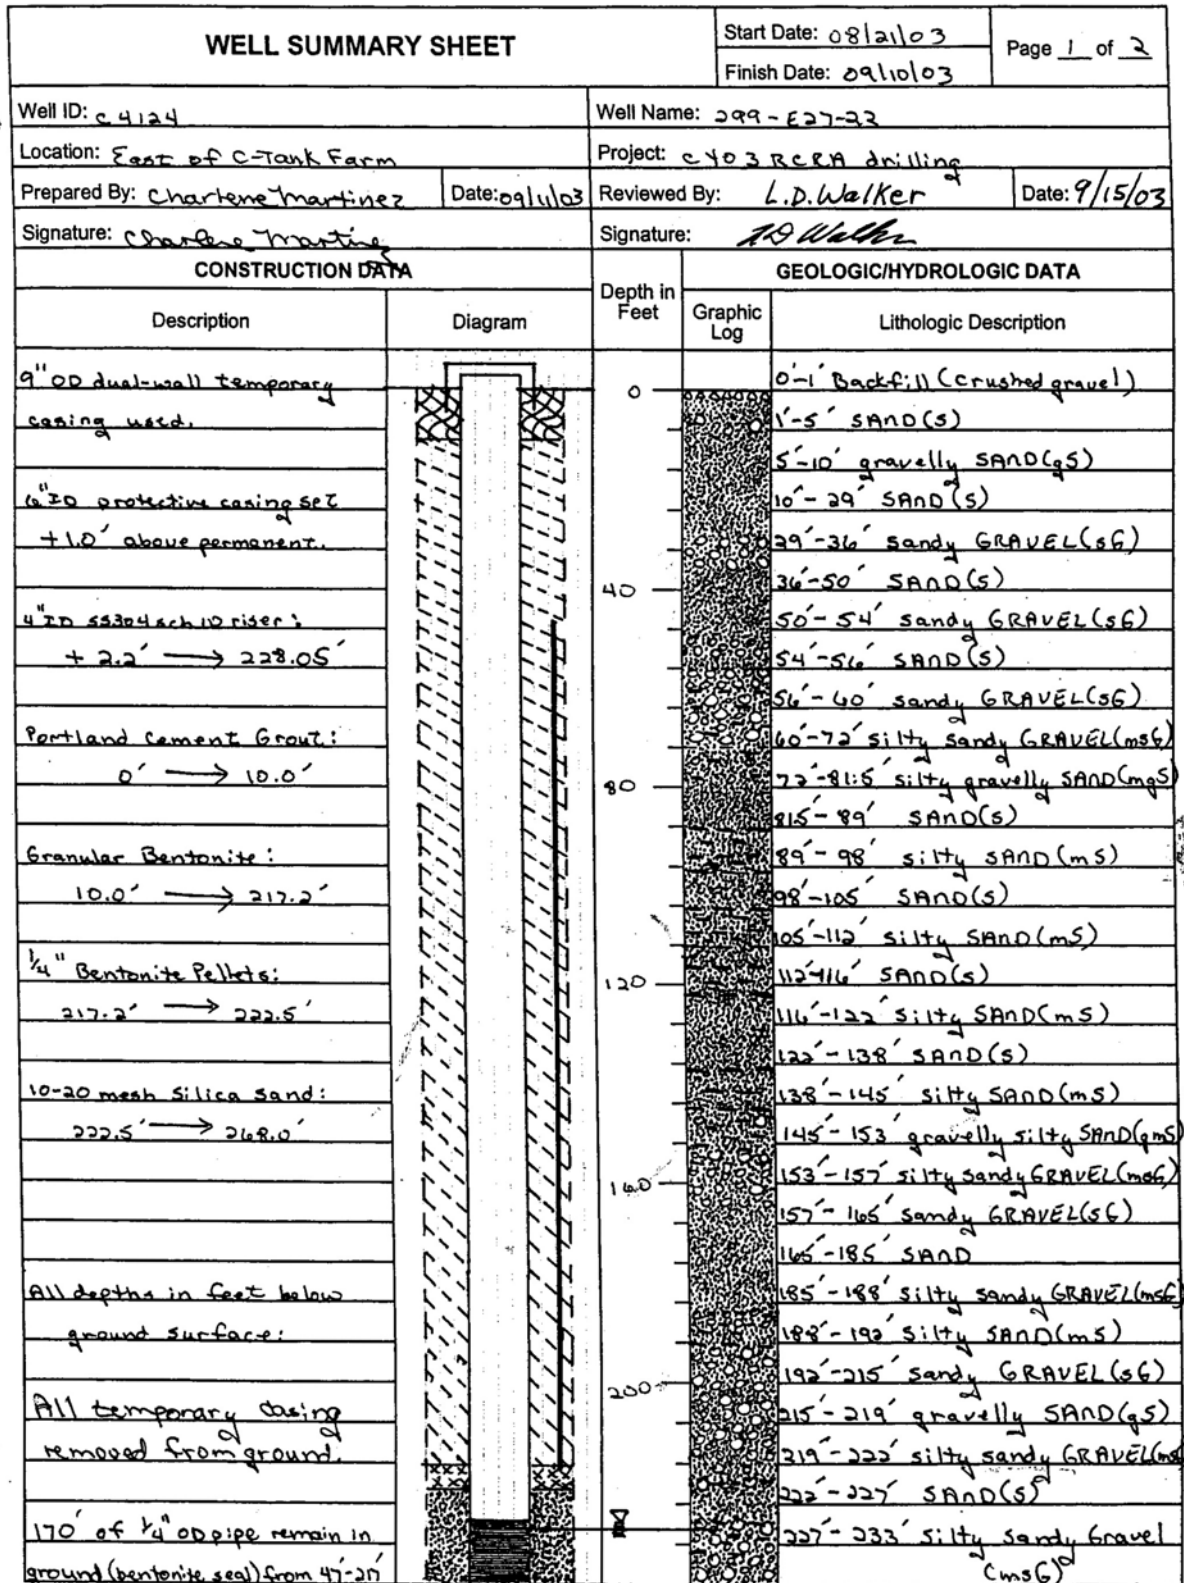 WELL SUMMARY SHEET
Start Date: 08/21/03
Finish Date: 09/10/03
Page 1 of 2
Well ID: C4124
Well Name: 299-E27-22
Location: East of C-Tank Farm
Project: CY03 RCRA drilling
Prepared By: Charlene Martinez
Date: 09/11/03
Reviewed By: L.D. Walker
Date: 9/15/03
Signature: Charlene Martinez
Signature: LD Walker
CONSTRUCTION DATA
Depth in Feet
GEOLOGIC/HYDROLOGIC DATA
Description
Diagram
Graphic Log
Lithologic Description
9" OD dual-wall temporary
casing used.
6" ID protective casing set
+1.0' above permanent.
4" ID SS304 sch 10 riser:
+ 2.2' → 228.05'
Portland Cement Grout:
0' → 10.0'
Granular Bentonite:
10.0' → 217.2'
1/4" Bentonite Pellets:
217.2' → 222.5'
10-20 mesh Silica Sand:
222.5' → 268.0'
All depths in feet below
ground surface:
All temporary casing
removed from ground.
170' of 1/4" OD pipe remain in
ground (bentonite seal) from 47'-217'
0
40
80
120
160
200
0'-1' Backfill (crushed gravel)
1'-5' SAND (S)
5'-10' gravelly SAND (gS)
10'-29' SAND (S)
29'-36' sandy GRAVEL (sG)
36'-50' SAND (S)
50'-54' sandy GRAVEL (sG)
54'-56' SAND (S)
56'-60' sandy GRAVEL (sG)
60'-72' silty sandy GRAVEL (msG)
72'-81.5' silty gravelly SAND (mgS)
81.5'-89' SAND (S)
89'-98' silty SAND (mS)
98'-105' SAND (S)
105'-112' silty SAND (mS)
112'-116' SAND (S)
116'-122' silty SAND (mS)
122'-138' SAND (S)
138'-145' silty SAND (mS)
145'-153' gravelly silty SAND (gmS)
153'-157' silty sandy GRAVEL (msG)
157'-165' sandy GRAVEL (sG)
165'-185' SAND
185'-188' silty sandy GRAVEL (msG)
188'-192' silty SAND (mS)
192'-215' sandy GRAVEL (sG)
215'-219' gravelly SAND (gS)
219'-222' silty sandy GRAVEL (msG
222'-227' SAND (S)
227'-233' silty sandy Gravel
(msG)